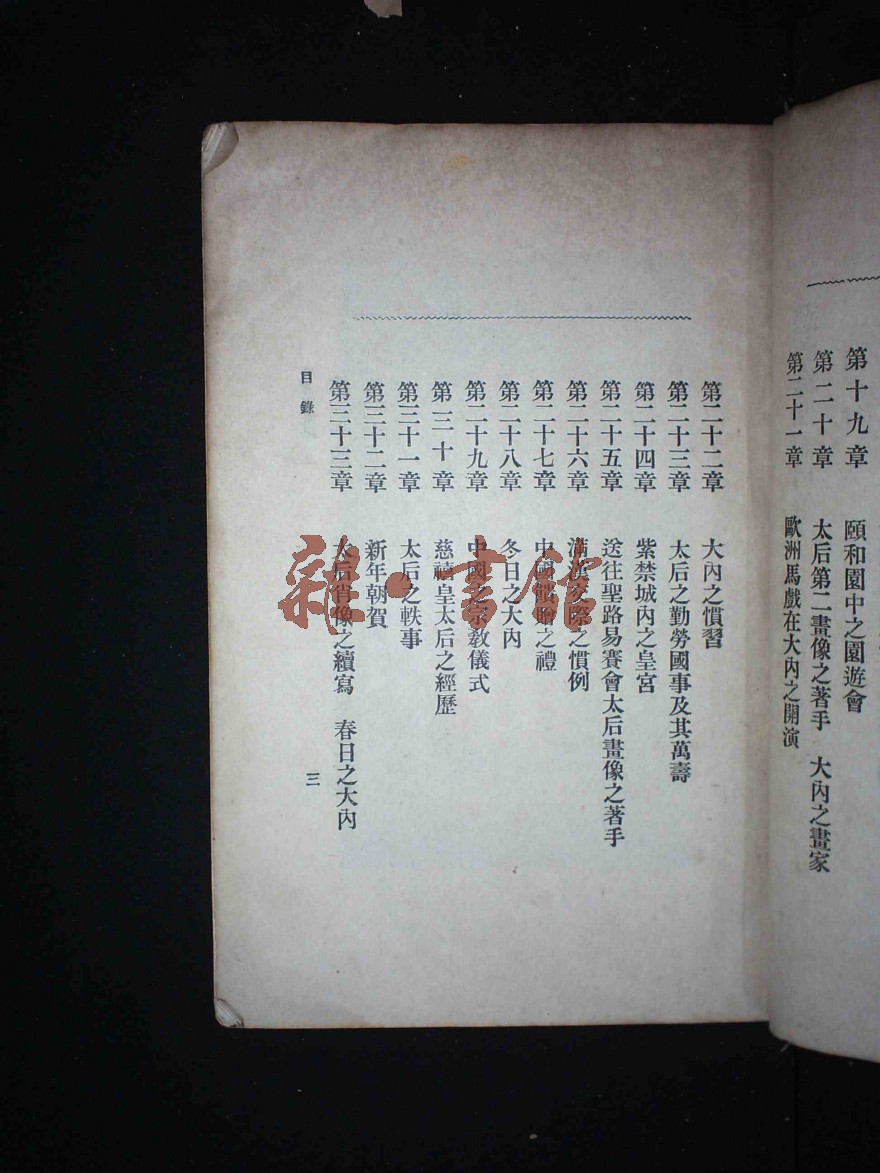 第十九章　頤和園中之園遊會
第二十章　太后第二畫像之著手　大內之畫家
第二十一章　歐洲馬戲在大內之開演
第二十二章　大內之慣習
第二十三章　太后之勤勞國事及其萬壽
第二十四章　紫禁城內之皇宮
第二十五章　送往聖路易賽會太后畫像之著手
第二十六章　滿漢交際之慣例
第二十七章　中國餽贈之禮
第二十八章　冬日之大內
第二十九章　中國之宗教儀式
第三十章　慈禧皇太后之經歷
第三十一章　太后之軼事
第三十二章　新年朝賀
第三十三章　太后肖像之續寫　春日之大內
目錄
三
雜·書館